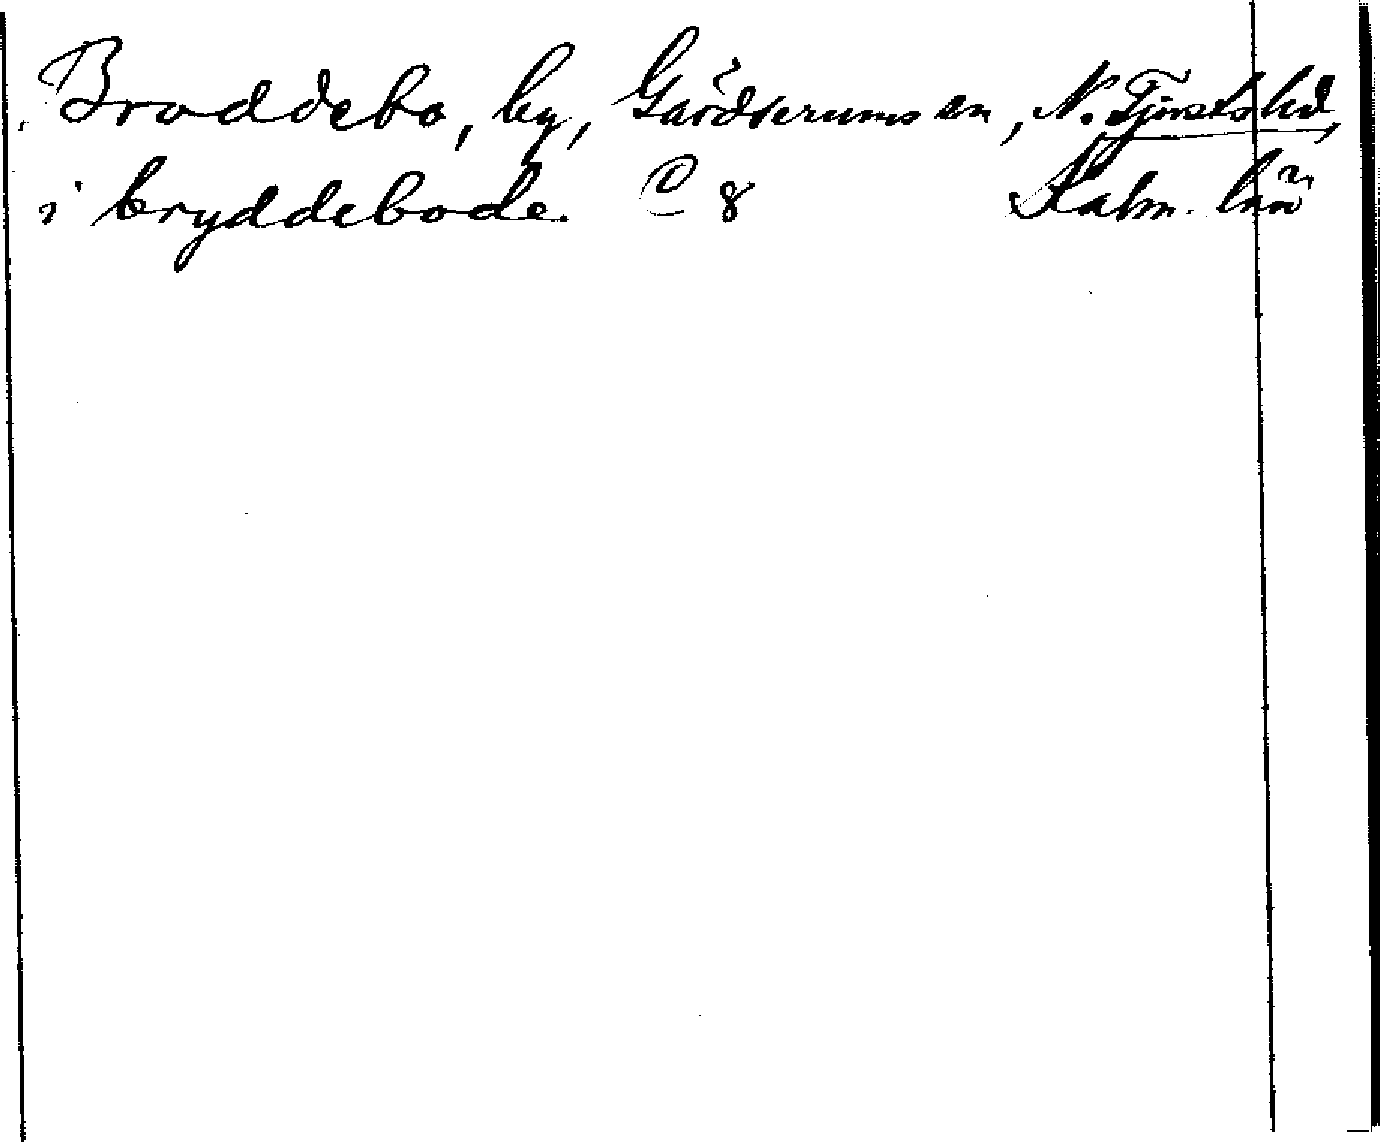 Broddebo, by, Gärdserums sn, N. Tjusts hd,
i bryddebode. C 8 Kalm. län